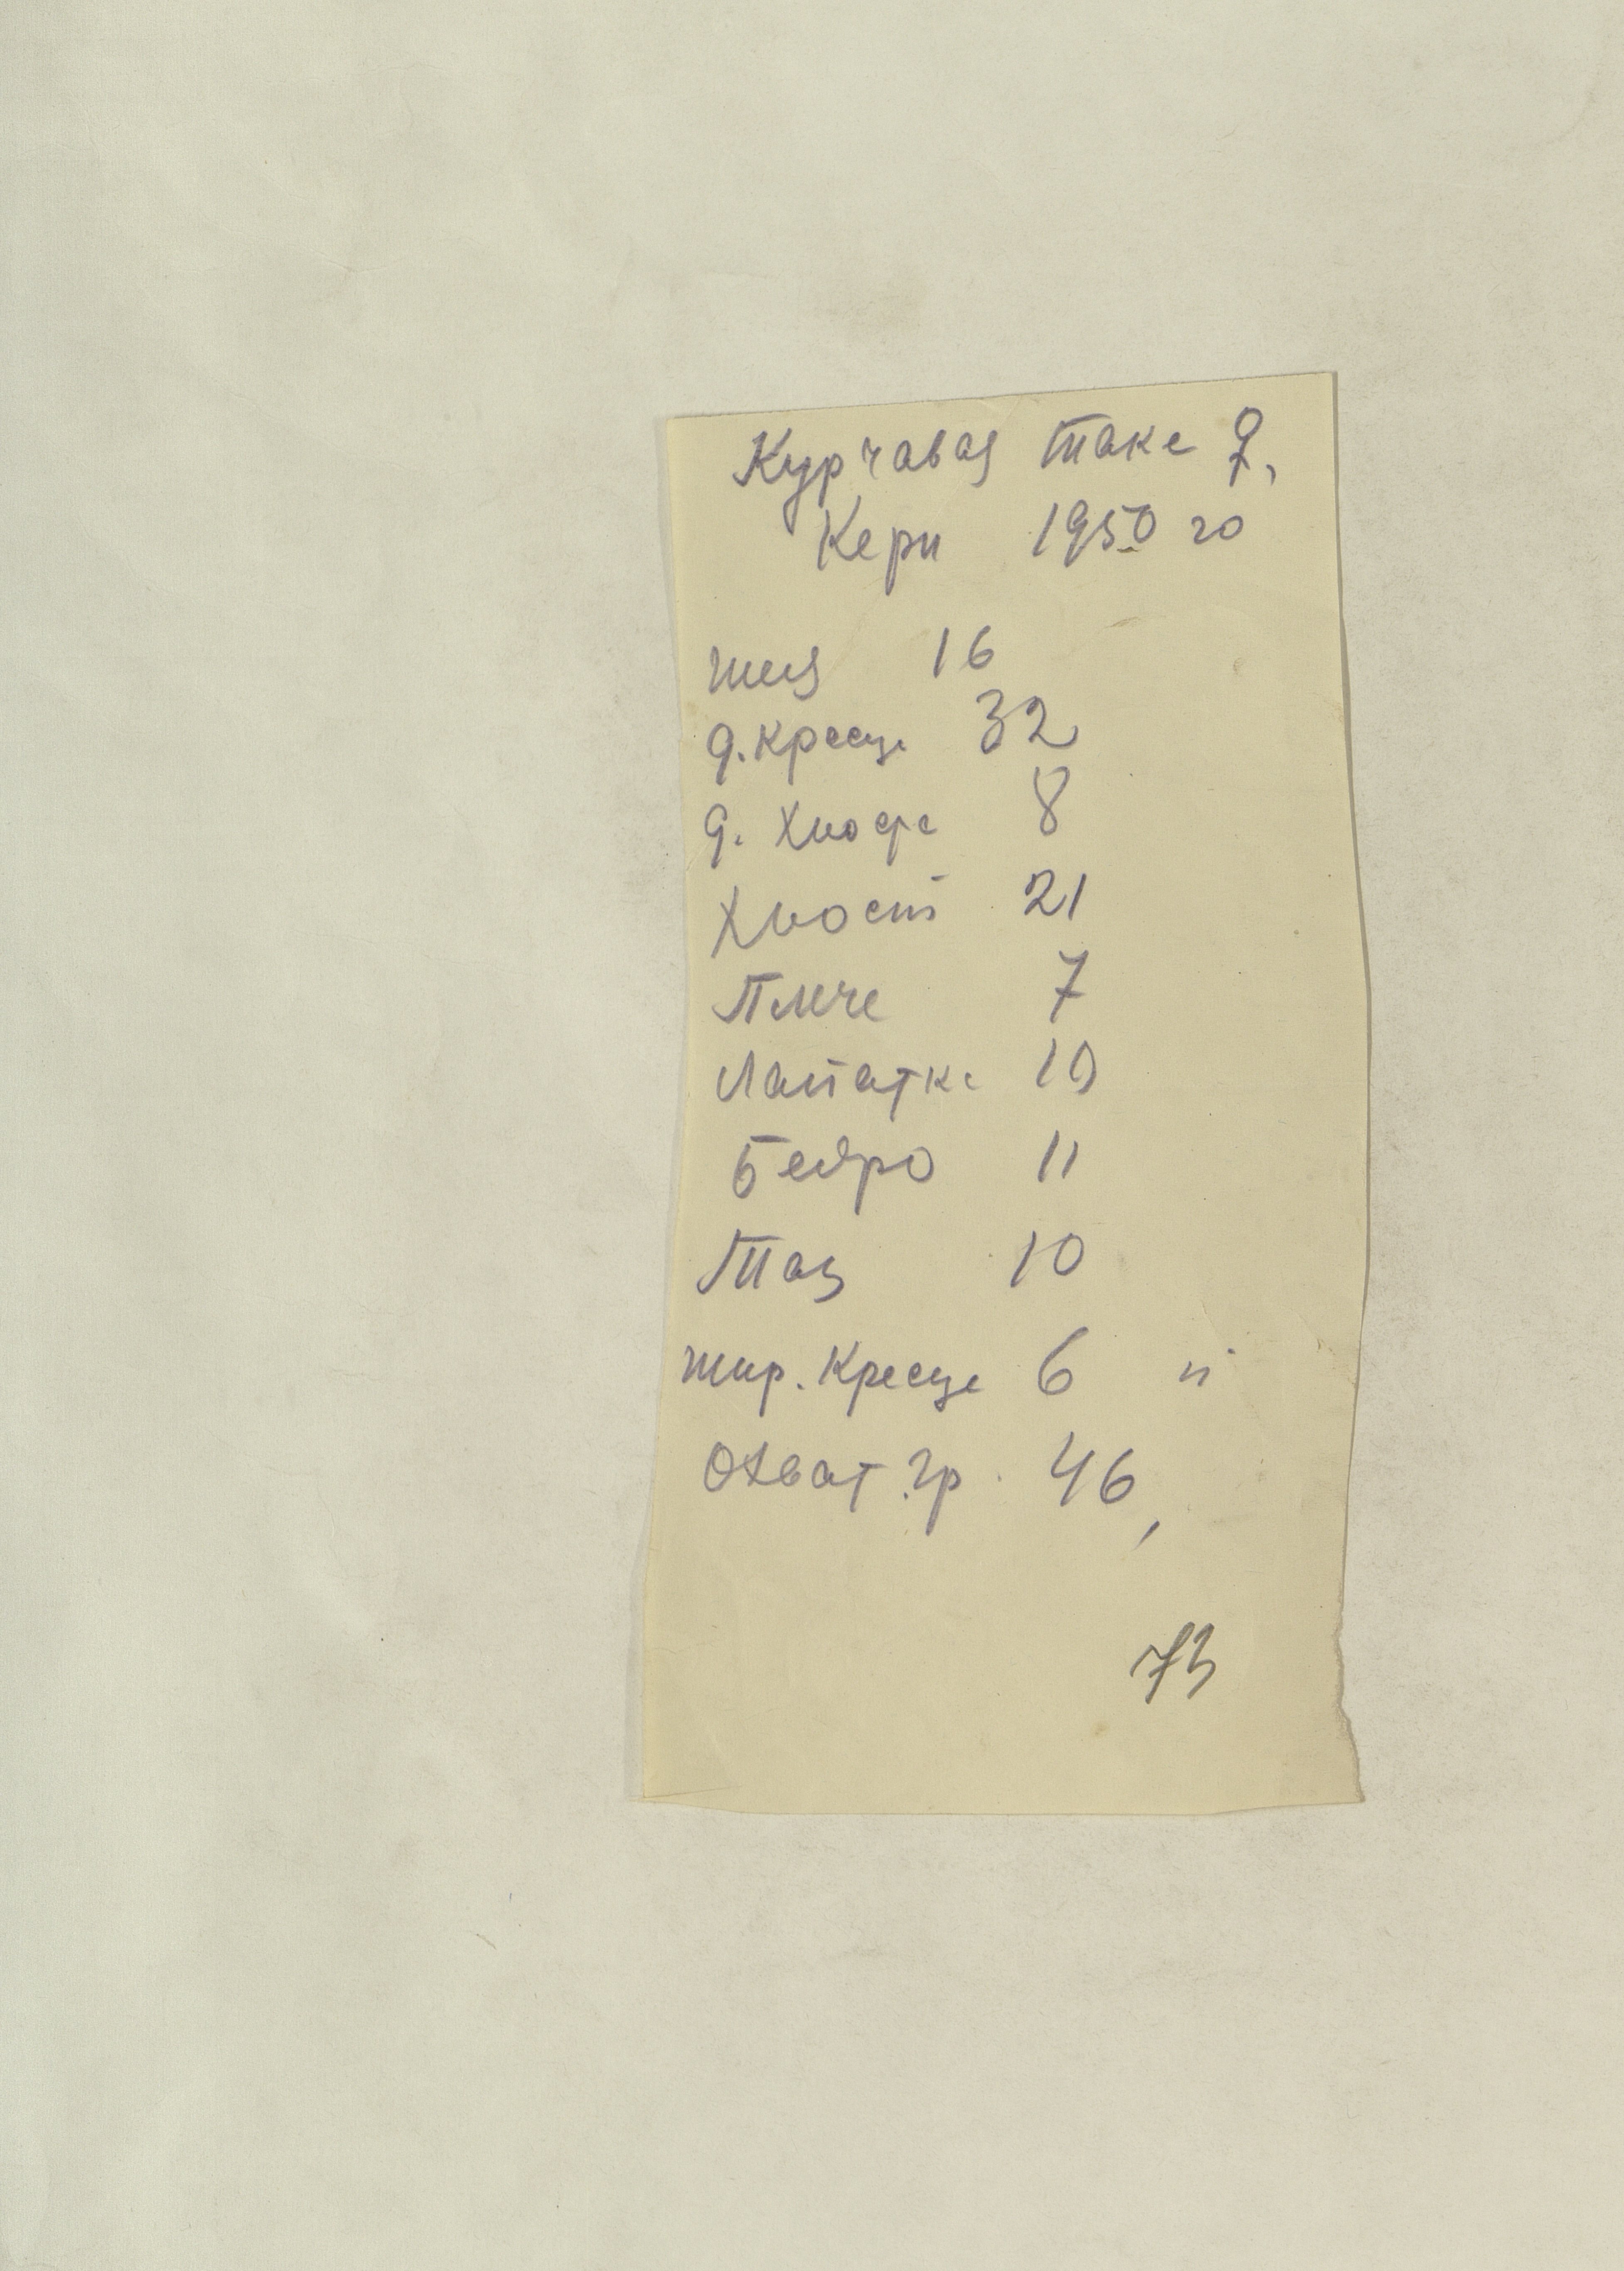 Курчавая такса ♀,
Кери 1950 го
шея 16
д. кресца 32
д. хвоста 8
Хвост 21
Плече 7
Лапатка 10
Бедро 11
Таз 10
шир. Кресца 6 "
Охват гр. 46,
73